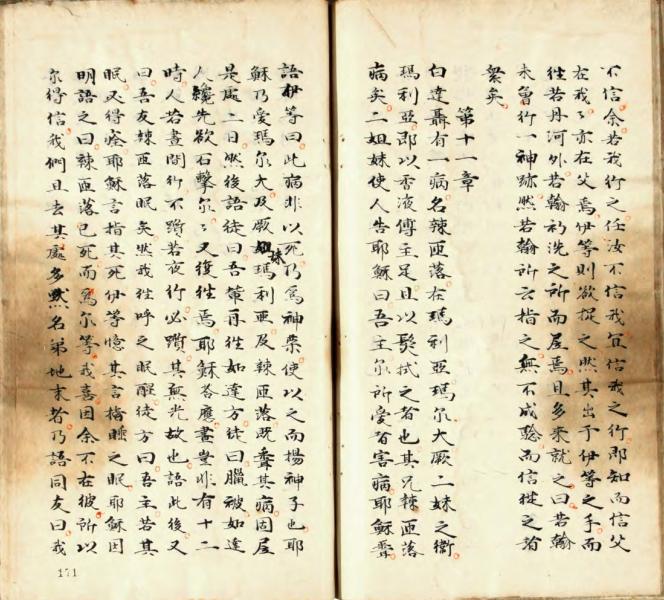 不信余若我行之任汝不信我宜信我之行即知而信父
在我々亦在父焉伊等則欲捉之然其出于伊等之手而
徃若丹河外若翰初洗之所而居焉且多來就之曰若翰
未曾行一神跡然若翰所言指之無不成驗而信從之者
衆矣
第十一章
白達聶有一病名辣匝落在瑪利亞瑪尔大厥二妹之衛
瑪利亞即以香液傅主足且以髮拭之者也其兄辣匝落
病矣二姐妹使人告耶穌曰吾主尔所愛者害病耶穌聞
語伊等曰此病非以死乃為神榮使以之而揚神子也耶
穌乃愛瑪尔大及厥妹瑪利亞及辣匝落既聞其病固居
是處二日然後語徒曰吾輩再徃如達方徒曰臘被如達
人纔先欲石擊尔々又復徃焉耶穌答應晝豈非有十二
時人若晝間行不躓若夜行必躓其無光故也語此後又
曰吾友辣匝落眠矣然我徃呼之眠醒徒方曰吾主若其
眠又得痊耶穌言指其死伊等憶其言指睡之眠耶穌因
明語之曰辣匝落已死而為尔等我喜因余不在彼所以
尔得信我們且去其處多默名弟地末者乃語同友曰我
171